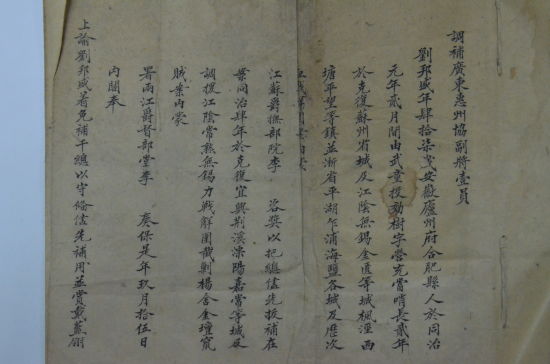 調補廣東惠州協副將壹員
劉邦盛年肆拾柒歲安徽廬州府合肥縣人於同治
元年貳月間由武童投効樹字營充當哨長貳年
於克復蘇州省城及江陰無錫金匱等城楓涇西
塘平望等鎮並浙省平湖乍浦海鹽各城及歷次
江蘇爵撫部院李 咨獎以把總儘先拔補在
案同治肆年於克復宜興荊溪溧陽嘉常等城及
調援江陰常熟無錫力戰解圍截剿楊舍金壇竄
賊案內蒙
署兩江爵督部堂李 奏保是年玖月拾伍日
內閣奉
上諭劉邦盛著免補千總以守備儘先補用並賞戴藍翎